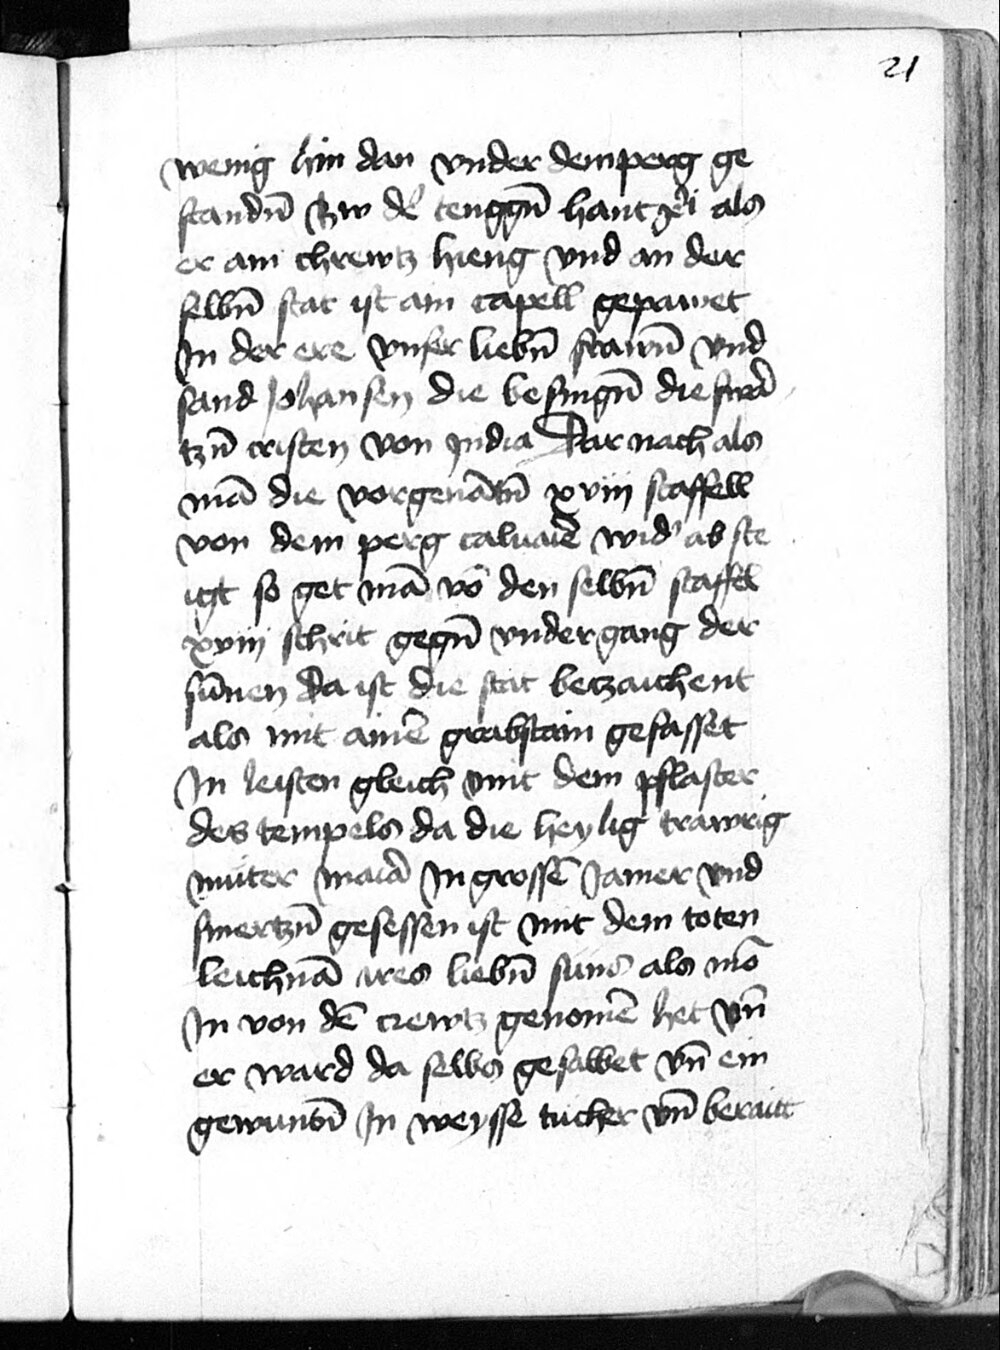 21
wenig hin dan vnder dem perg ge
standn̄ tzw d' tenggn̄ hant xp̄i als
er am chrewtz hieng vnd an der
selbn̄ stat ist ain capell gepawet
In der ere vnser liebn̄ frawn̄ vnd
sand Johansen die besingn̄ die swar
tzn̄ cristen von India Darnach als
mā die vorgenātn̄ xviij staffell
von dem perg caluarie wid' ab ste
igt so get mā vō den selbn̄ staffel
xviij schrit gegn̄ vndergang der
sūnen Da ist die stat betzaichent
als mit ainē grabstain gefasset
In leisten gleich mit dem pflaster
des tempels da die heylig trawrig
muter maria In grossē Jamer vnd
smertzn̄ gesessen ist mit dem toten
leichnā ires liebn̄ suns als mā
In von dē crewtz genomē het vn̄
er ward da selbs gesalbet vn̄ ein
gewuntn̄ In weysse tucher vn̄ berait